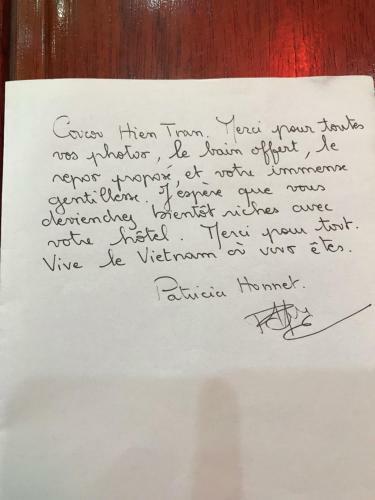 Coucou Hien Tran. Merci pour toutes
vos photos, le bain offert, le
repos proposé, et votre immense
gentillesse. J'espère que vous
deviendrez bientôt riches avec
votre hôtel. Merci pour tout.
Vive le Vietnam où vous êtes.
Patricia Honnet.